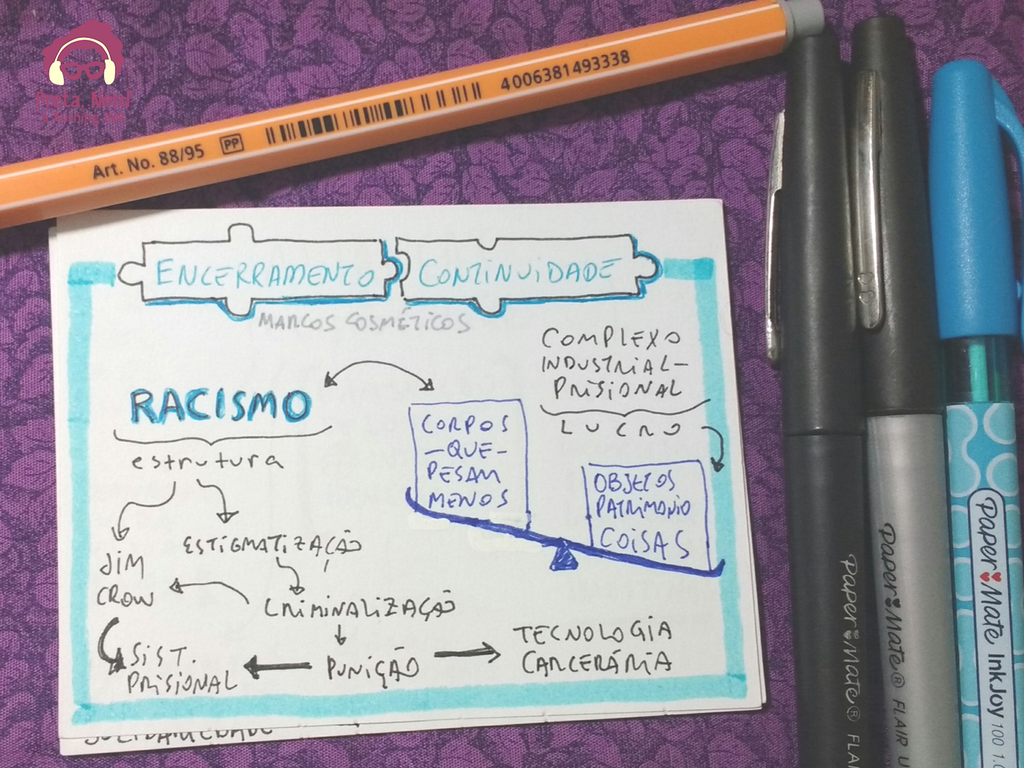 Preta, Nerd
& Burning Hell
Art. No. 88/95 PP 4006381493338
ENCERRAMENTO CONTINUIDADE
MARCOS COSMÉTICOS
COMPLEXO
INDUSTRIAL-
PRISIONAL
LUCRO
RACISMO
estrutura
CORPOS
-QUE-
PESAM
MENOS
OBJETOS
PATRIMONIO
COISAS
JIM
CROW
ESTIGMATIZAÇÃO
CRIMINALIZAÇÃO
SIST.
PRISIONAL
PUNIÇÃO
TECNOLOGIA
CARCERÁRIA
Paper Mate® FLAI
Paper Mate® FLAIR U
Paper Mate InkJoy 100 1.0